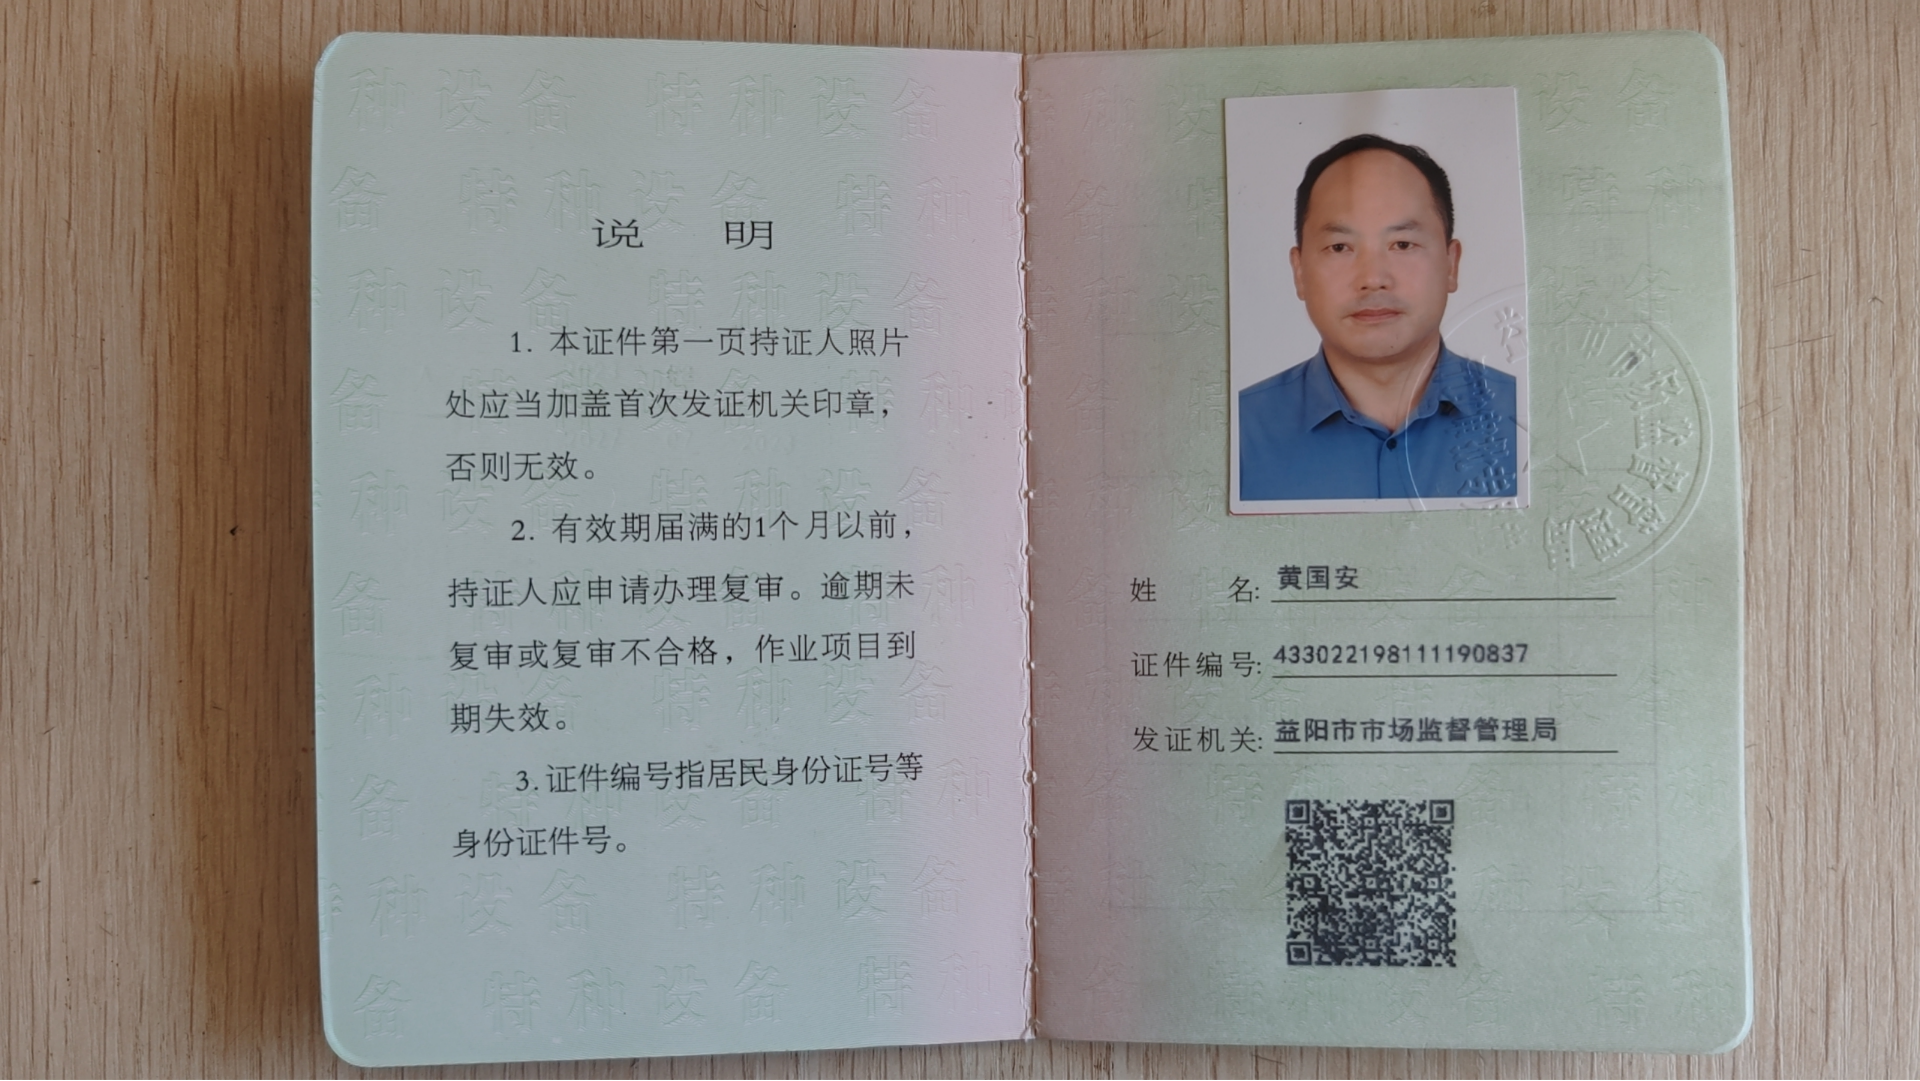 说 明
1. 本证件第一页持证人照片
处应当加盖首次发证机关印章，
否则无效。
2. 有效期届满的1个月以前，
持证人应申请办理复审。逾期未
复审或复审不合格，作业项目到
期失效。
3.证件编号指居民身份证号等
身份证件号。
姓 名: 黄国安
证件编号: 433022198111190837
发证机关: 益阳市市场监督管理局